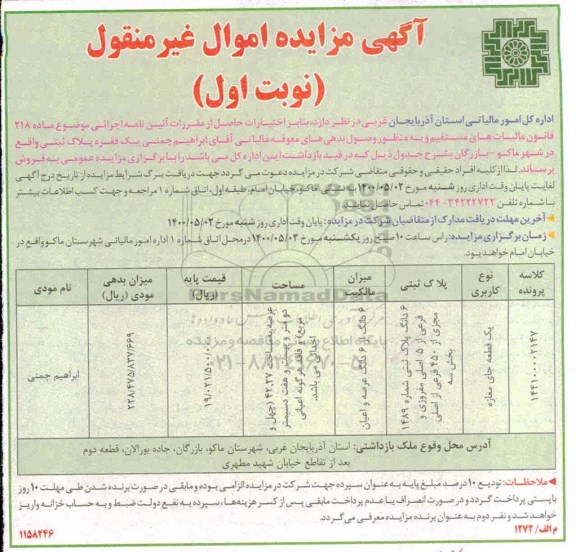 آگهی مزایده اموال غیر منقول
(نوبت اول)
اداره کل امور مالیاتی استان آذربایجان غربی در نظر دارد، بنابر اختیارات حاصل از مقررات آئین نامه اجرائی موضوع ماده ۲۱۸
قانون مالیات های مستقیم و به منظور وصول بدهی های معوقه مالیاتی آقای ابراهیم چمنی یک فقره پلاک ثبتی واقع
در شهر ماکو - بازرگان بشرح جدول ذیل که در قید بازداشت این اداره کل می باشد را با برگزاری مزایده عمومی به فروش
برساند. لذا از کلیه افراد حقیقی و حقوقی متقاضی شرکت در مزایده دعوت می گردد جهت دریافت برگ شرایط مزایده از تاریخ درج آگهی
لغایت پایان وقت اداری روز شنبه مورخ ۱۴۰۰/۰۵/۰۲ به نشانی ماکو، خیابان امام، طبقه اول، اتاق شماره ۱ مراجعه و جهت کسب اطلاعات بیشتر
با شماره تلفن ۳۴۲۲۲۷۲۲-۰۴۴ تماس حاصل نمایند.
آخرین مهلت دریافت مدارک از متقاضیان شرکت در مزایده: پایان وقت اداری روز شنبه مورخ ۱۴۰۰/۰۵/۰۲
زمان برگزاری مزایده: راس ساعت ۱۰ صبح روز یکشنبه مورخ ۱۴۰۰/۰۵/۰۳ در محل اتاق شماره ۱ اداره امور مالیاتی شهرستان ماکو واقع در
خیابان امام خواهد بود.
کلاسه پرونده | نوع کاربری | پلاک ثبتی | میزان مالکیت | مساحت | قیمت پایه (ریال) | میزان بدهی مودی (ریال) | نام مودی
یک قطعه جای مغازه
۶ دانگ پلاک ثبتی شماره ۱۴۸۹ فرعی از ۵ اصلی مفروزی و مجزی از ۴۵۰ فرعی از اصلی بخش سه
۶ دانگ از ۶ دانگ عرصه و اعیان
عرصه بمساحت ۴۲.۲۷ (چهل و دو متر و بیست و هفت دسیمتر مربع) و فاقد هرگونه اعیانی احداثی می باشد.
۲۲۸/۴۷۵/۸۳۷/۶۶۹
ابراهیم چمنی
آدرس محل وقوع ملک بازداشتی: استان آذربایجان غربی، شهرستان ماکو، بازرگان، جاده بورالان، قطعه دوم
بعد از تقاطع خیابان شهید مطهری
ملاحظات: تودیع ۱۰ درصد مبلغ پایه به عنوان سپرده جهت شرکت در مزایده الزامی بوده و مابقی در صورت برنده شدن طی مهلت ۱۰ روز
بایستی پرداخت گردد و در صورت انصراف یا عدم پرداخت مابقی پس از کسر هزینه ها، سپرده به نفع دولت ضبط و به حساب خزانه واریز
خواهد شد و نفر دوم به عنوان برنده مزایده معرفی می گردد.
م الف/ ۱۲۷۲
۱۱۵۸۲۴۶
ParsNamadData